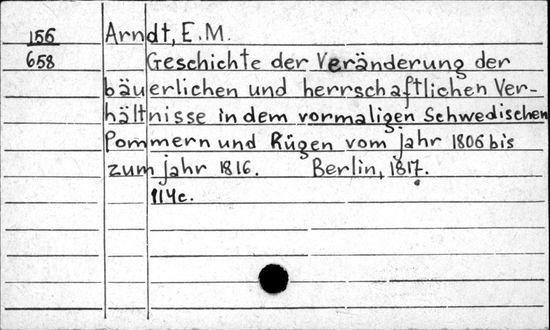 156 Arndt, E.M.
658 Geschichte der Veränderung der
bäuerlichen und herrschaftlichen Ver-
hältnisse in dem vormaligen Schwedischen
Pommern und Rügen vom jahr 1806 bis
zum jahr 1816. Berlin, 1817.
114c.